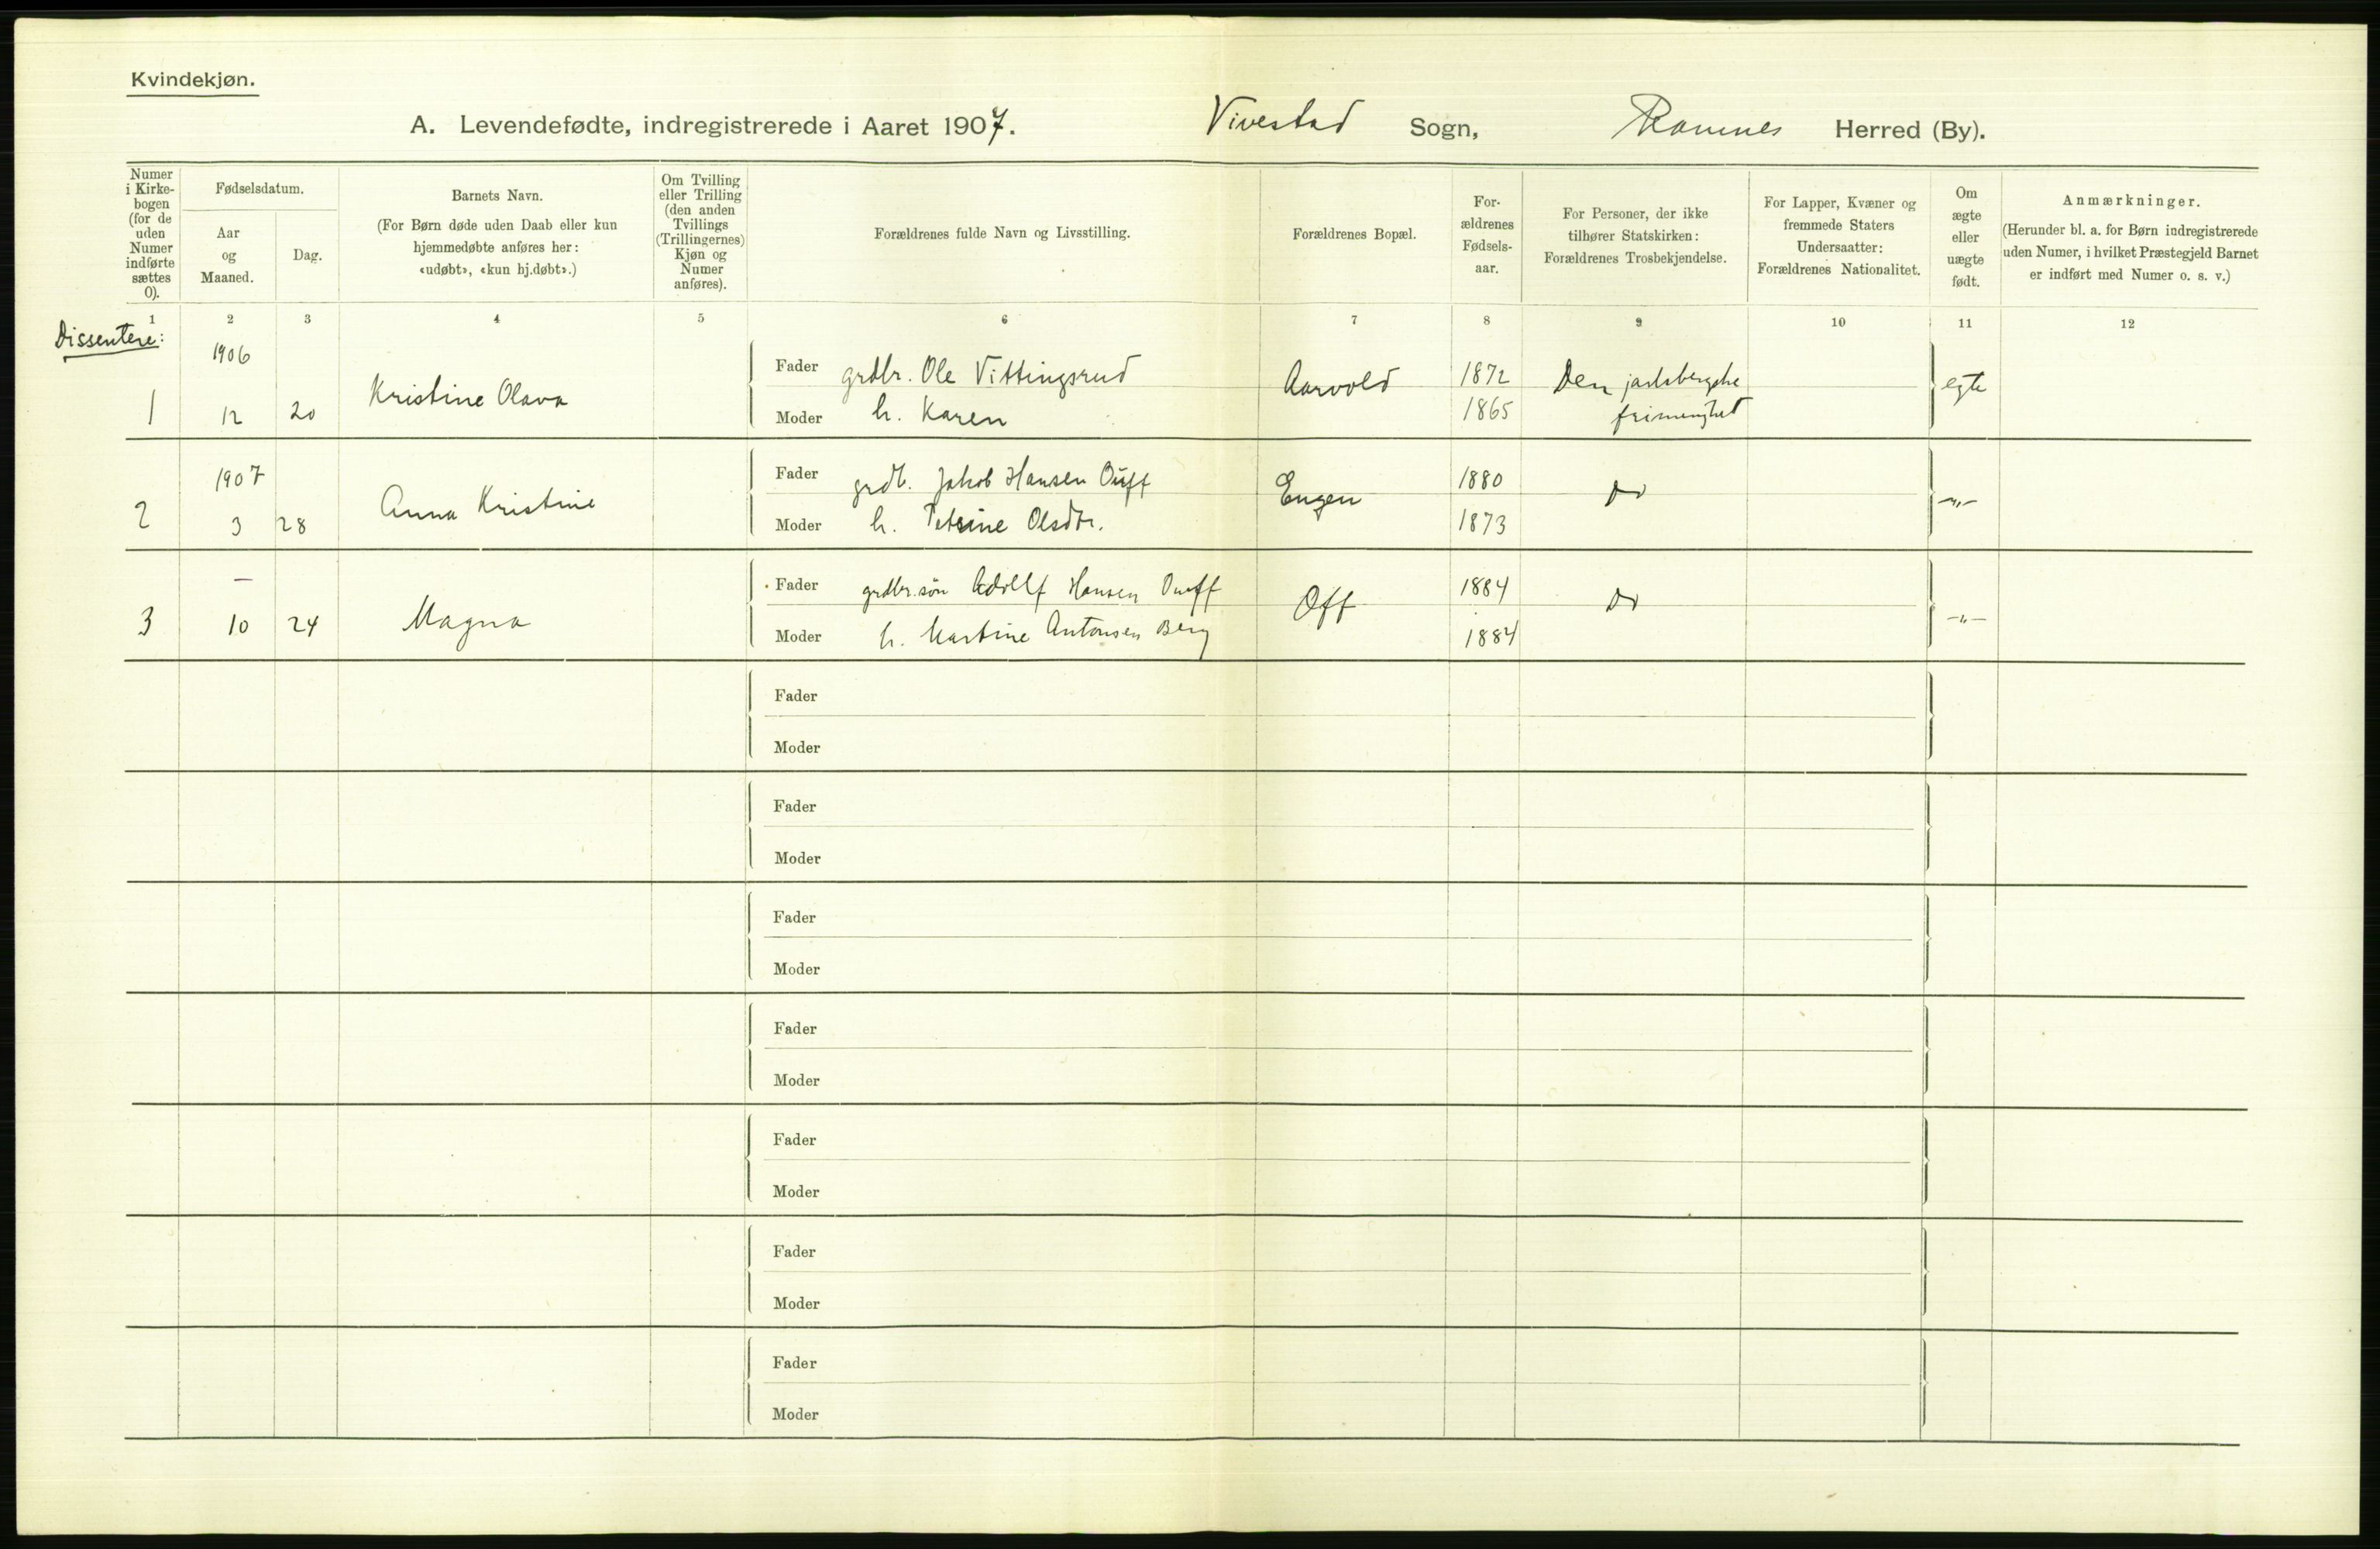 Kvindekjøn.
A. Levendefødte, indregistrerede i Aaret 1907. Vivestad Sogn, Ramnes Herred (By).
Numer i Kirkebogen (for de uden Numer indførte sættes 0).
Fødselsdatum.
Aar og Maaned.
Dag.
Barnets Navn.
(For Børn døde uden Daab eller kun hjemmedøbte anføres her: «udøbt», «kun hj.døbt».)
Om Tvilling eller Trilling (den anden Tvillings (Trillingernes) Kjøn og Numer anføres).
Forældrenes fulde Navn og Livsstilling.
Forældrenes Bopæl.
Forældrenes Fødselsaar.
For Personer, der ikke tilhører Statskirken: Forældrenes Trosbekjendelse.
For Lapper, Kvæner og fremmede Staters Undersaatter: Forældrenes Nationalitet.
Om ægte eller uægte født.
Anmærkninger.
(Herunder bl. a. for Børn indregistrerede uden Numer, i hvilket Præstegjeld Barnet er indført med Numer o. s. v.)
1 2 3 4 5 6 7 8 9 10 11 12
Dissentere:
1906
1 12 20 Kristine Olava
Fader grdbr. Ole Vittingsrud Aarvold 1872 Den jarlsbergske egte
Moder h. Karen 1865 frimenighet
1907
2 3 28 Anna Kristine
Fader grdb. Jakob Hansen Ouff Engen 1880 Do -"-
Moder h. Petrine Olsdtr. 1873
—
3 10 24 Magna
Fader grdbr.søn Adolf Hansen Ouff Off 1884 Do -"-
Moder h. Martine Antonsen Berg 1884
Fader
Moder
Fader
Moder
Fader
Moder
Fader
Moder
Fader
Moder
Fader
Moder
Fader
Moder